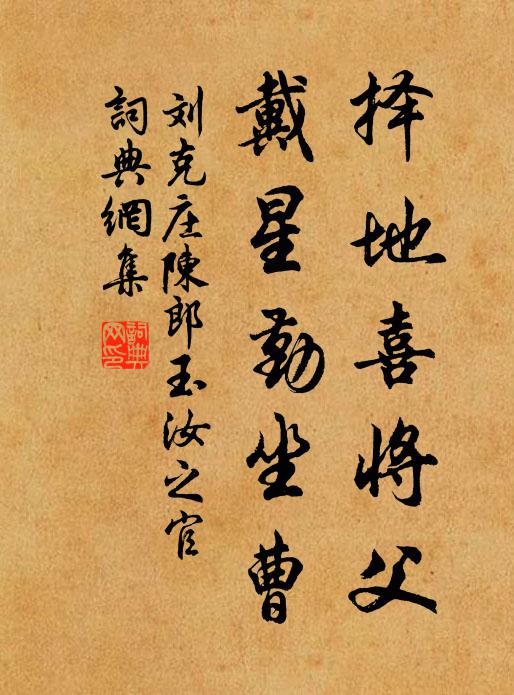 择地喜将父
戴星勤坐曹
刘克庄陳郎玉汝之官
詞典網集
詞典网印